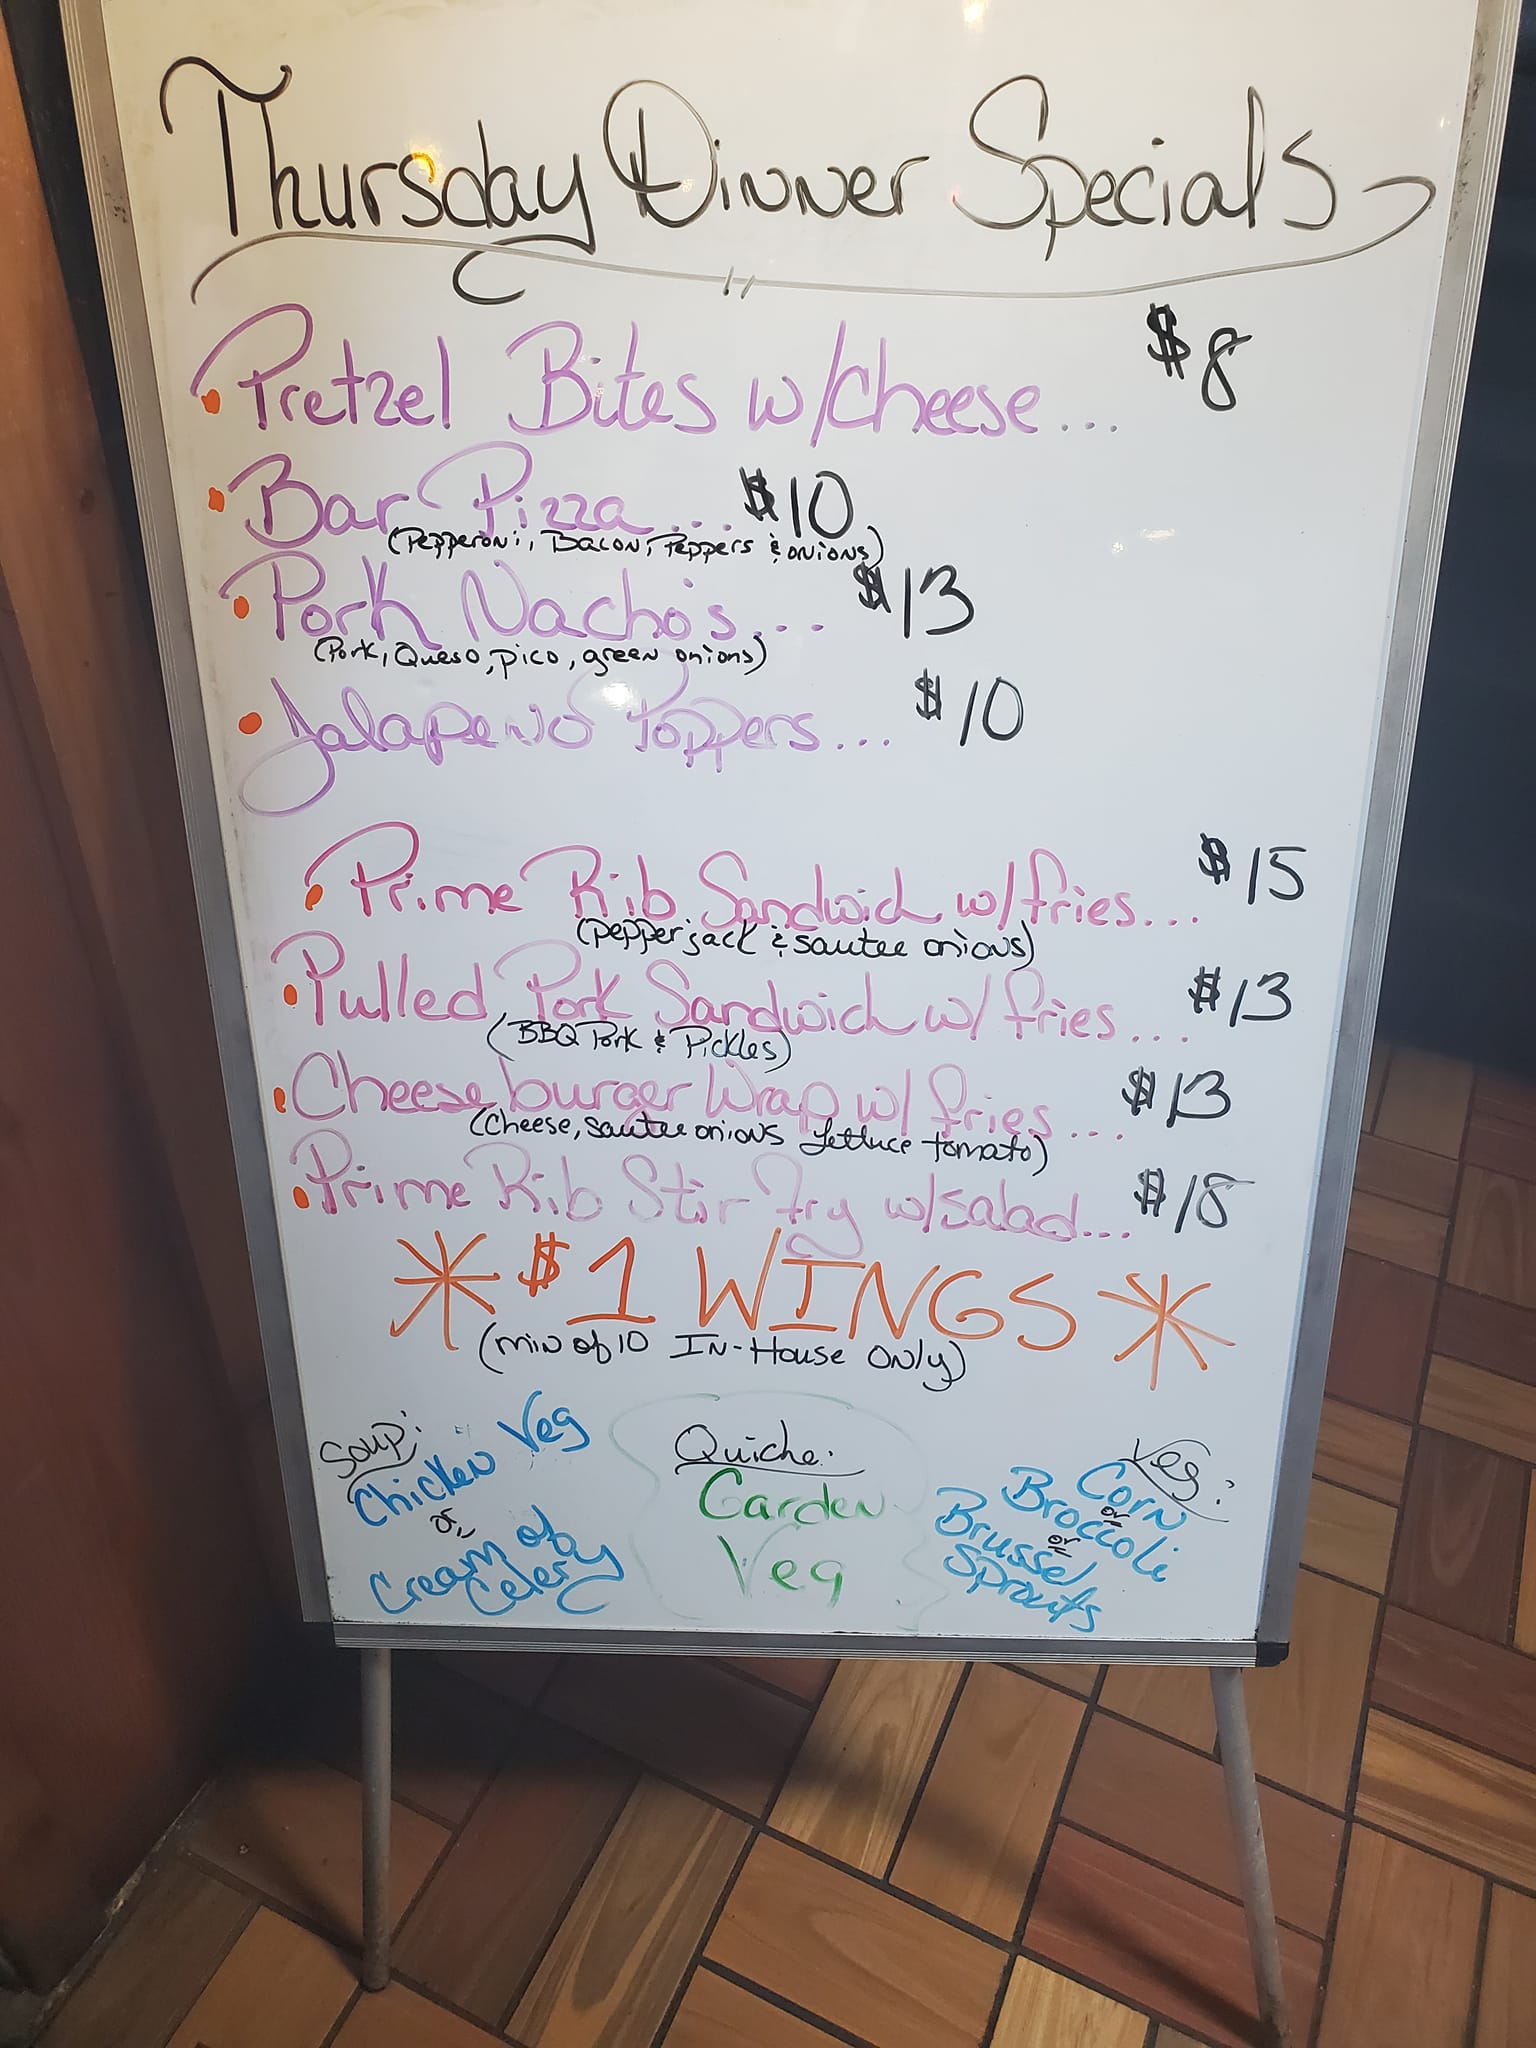 Thursday Dinner Specials
• Pretzel Bites w/cheese... $8
• Bar Pizza... $10
(Pepperoni, Bacon, Peppers & onions)
• Pork Nacho's... $13
(Pork, Queso, pico, green onions)
• Jalapeno Poppers... $10
• Prime Rib Sandwich w/fries... $15
(Pepperjack & sautee onions)
• Pulled Pork Sandwich w/fries... $13
(BBQ Pork & Pickles)
• Cheeseburger Wrap w/fries... $13
(Cheese, sautee onions lettuce tomato)
• Prime Rib Stir Fry w/salad... $18
* $1 WINGS *
(min of 10 IN-House ONly)
Soup:
Chicken Veg
or
Cream of
Celery
Quiche:
Garden
Veg
Veg:
Corn
or
Broccoli
or
Brussel
Sprouts